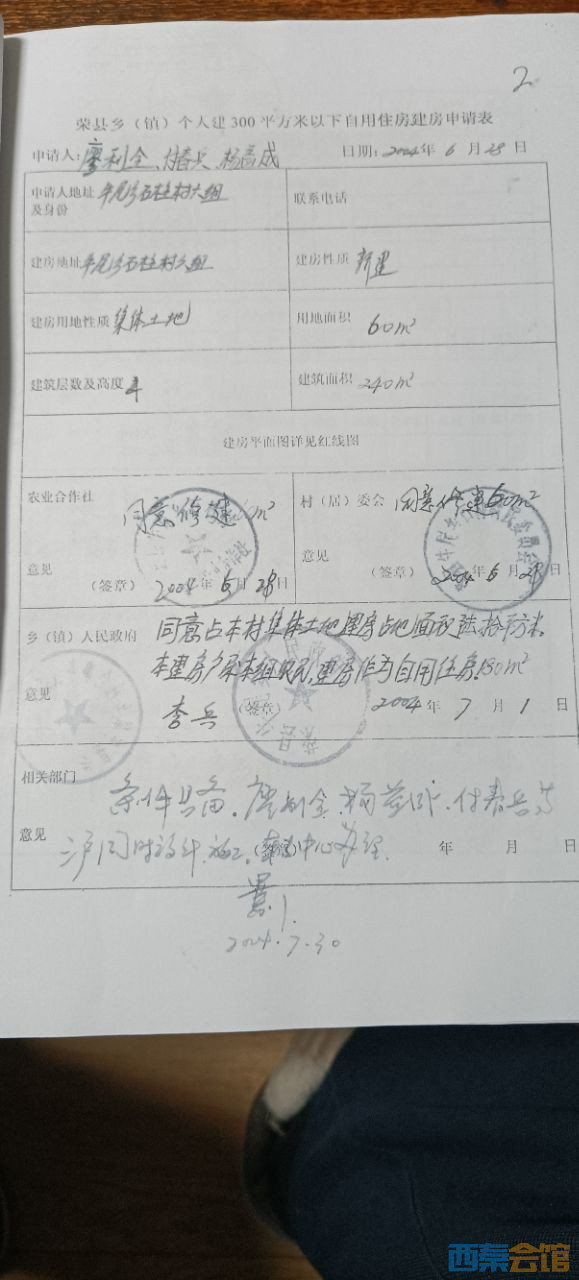 2
荣县乡（镇）个人建300平方米以下自用住房建房申请表
申请人：廖利全、付春兵、杨 成 日期：2004年 6 月 28 日
申请人地址及身份 牟尾 石柱村六组 联系电话
建房地址 牟尾 石柱村六组 建房性质 新建
建房用地性质 集体土地 用地面积 60m²
建筑层数及高度 4 建筑面积 240m²
建房平面图详见红线图
农业合作社 村（居）委会
同意修建 m² 同意修建60m²
意见 意见
（签章） 2004年 6月 28日 （签章） 2004年 6月 28日
乡（镇）人民政府 同意占本村集体土地建房占地面积陆拾平方米。
本建房户原本组农民，建房作为自用住房180m²
意见 李兵 （签章） 2004年 7 月 1 日
相关部门 条件具备。廖利全、杨 、付春兵等
意见 三户同时设计、施工。 中心办理 年 月 日
2004.7.30
西秦会馆